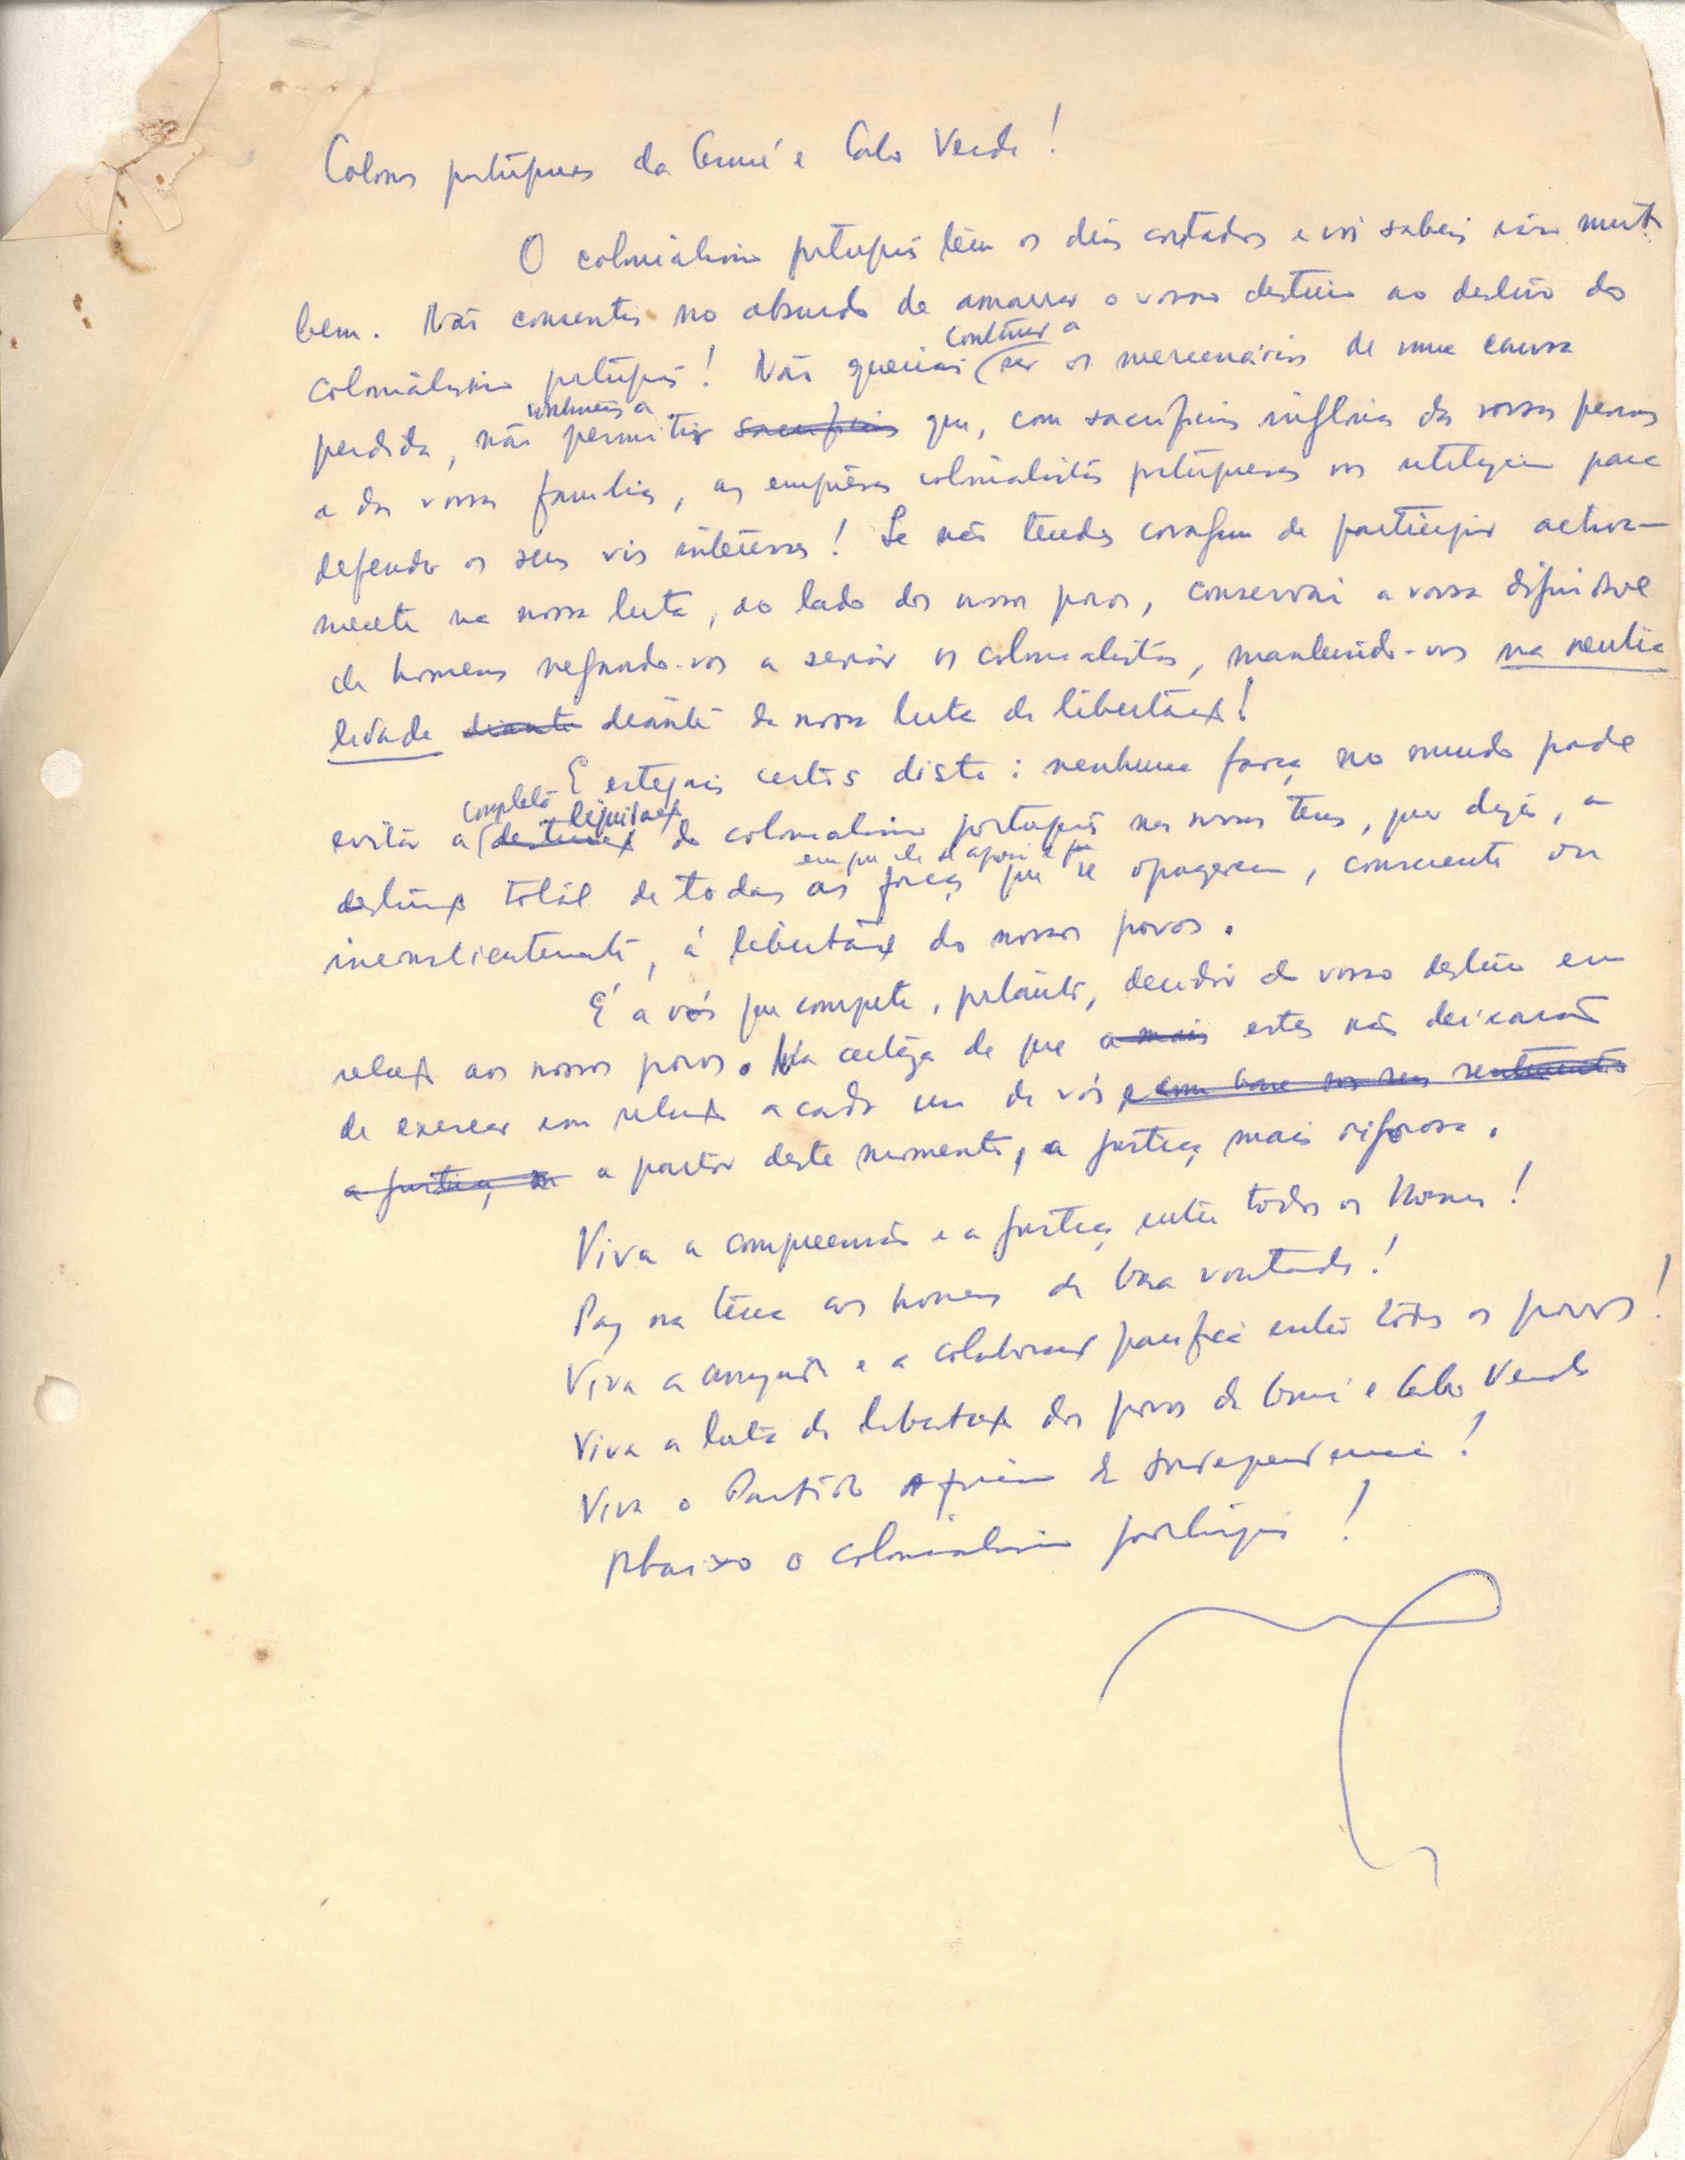 Colonos portugueses da Guiné e Cabo Verde!
O colonialismo português tem os dias contados e vós sabeis isso muito
bem. Não consentis no absurdo de amarrar o vosso destino ao destino do
colonialismo português! Não queirais continuar a ser os mercenários de uma causa
perdida, não continueis a permitir sacrifícios que, com sacrifícios inglórios das vossas pessoas
e das vossas famílias, as emprêsas colonialistas portuguesas vos utilizem para
defender os seus vis interesses! Se não tendes coragem de participar activa-
mente na nossa luta, ao lado dos nossos povos, conservai a vossa dignidade
de homens negando-vos a servir os colonialistas, mantendo-vos na neutra
lidade diante diante da nossa luta de libertação!
E estejais certos disto: nenhuma força no mundo pode
evitar a completa destruição liquidação do colonialismo português nas nossas terras, quer dizer, a
destruição total de todas as forças em que ele se apoia e que que se opuzerem, consciente ou
inconscientemente, à libertação dos nossos povos.
É a vós que compete, portanto, decidir do vosso destino em
relação aos nossos povos. Na certeza de que a mais estes não deixarão
de exercer em relação a cada um de vós, e com base nos seus sentimentos
a justiça, a partir deste momento, a justiça mais rigorosa.
Viva a compreensão e a justiça entre todos os homens!
Paz na terra aos homens de boa vontade!
Viva a amizade e a colaboração pacífica entre todos os povos!
Viva a luta de libertação dos povos da Guiné e Cabo Verde
Viva o Partido Africano da Independência!
Abaixo o colonialismo português!